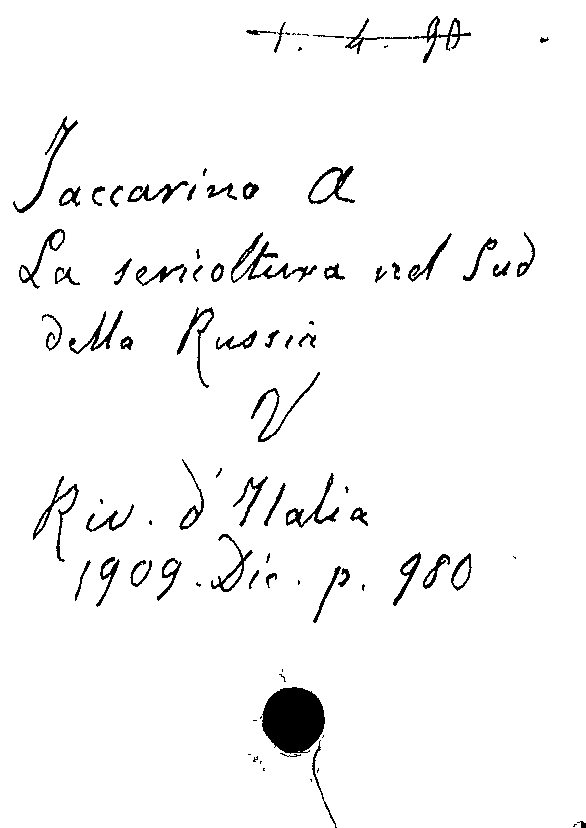 1. 4. 90
Jaccarino A
La sericoltura nel Sud
della Russia
V
Riv. d'Italia
1909. Dic. p. 980